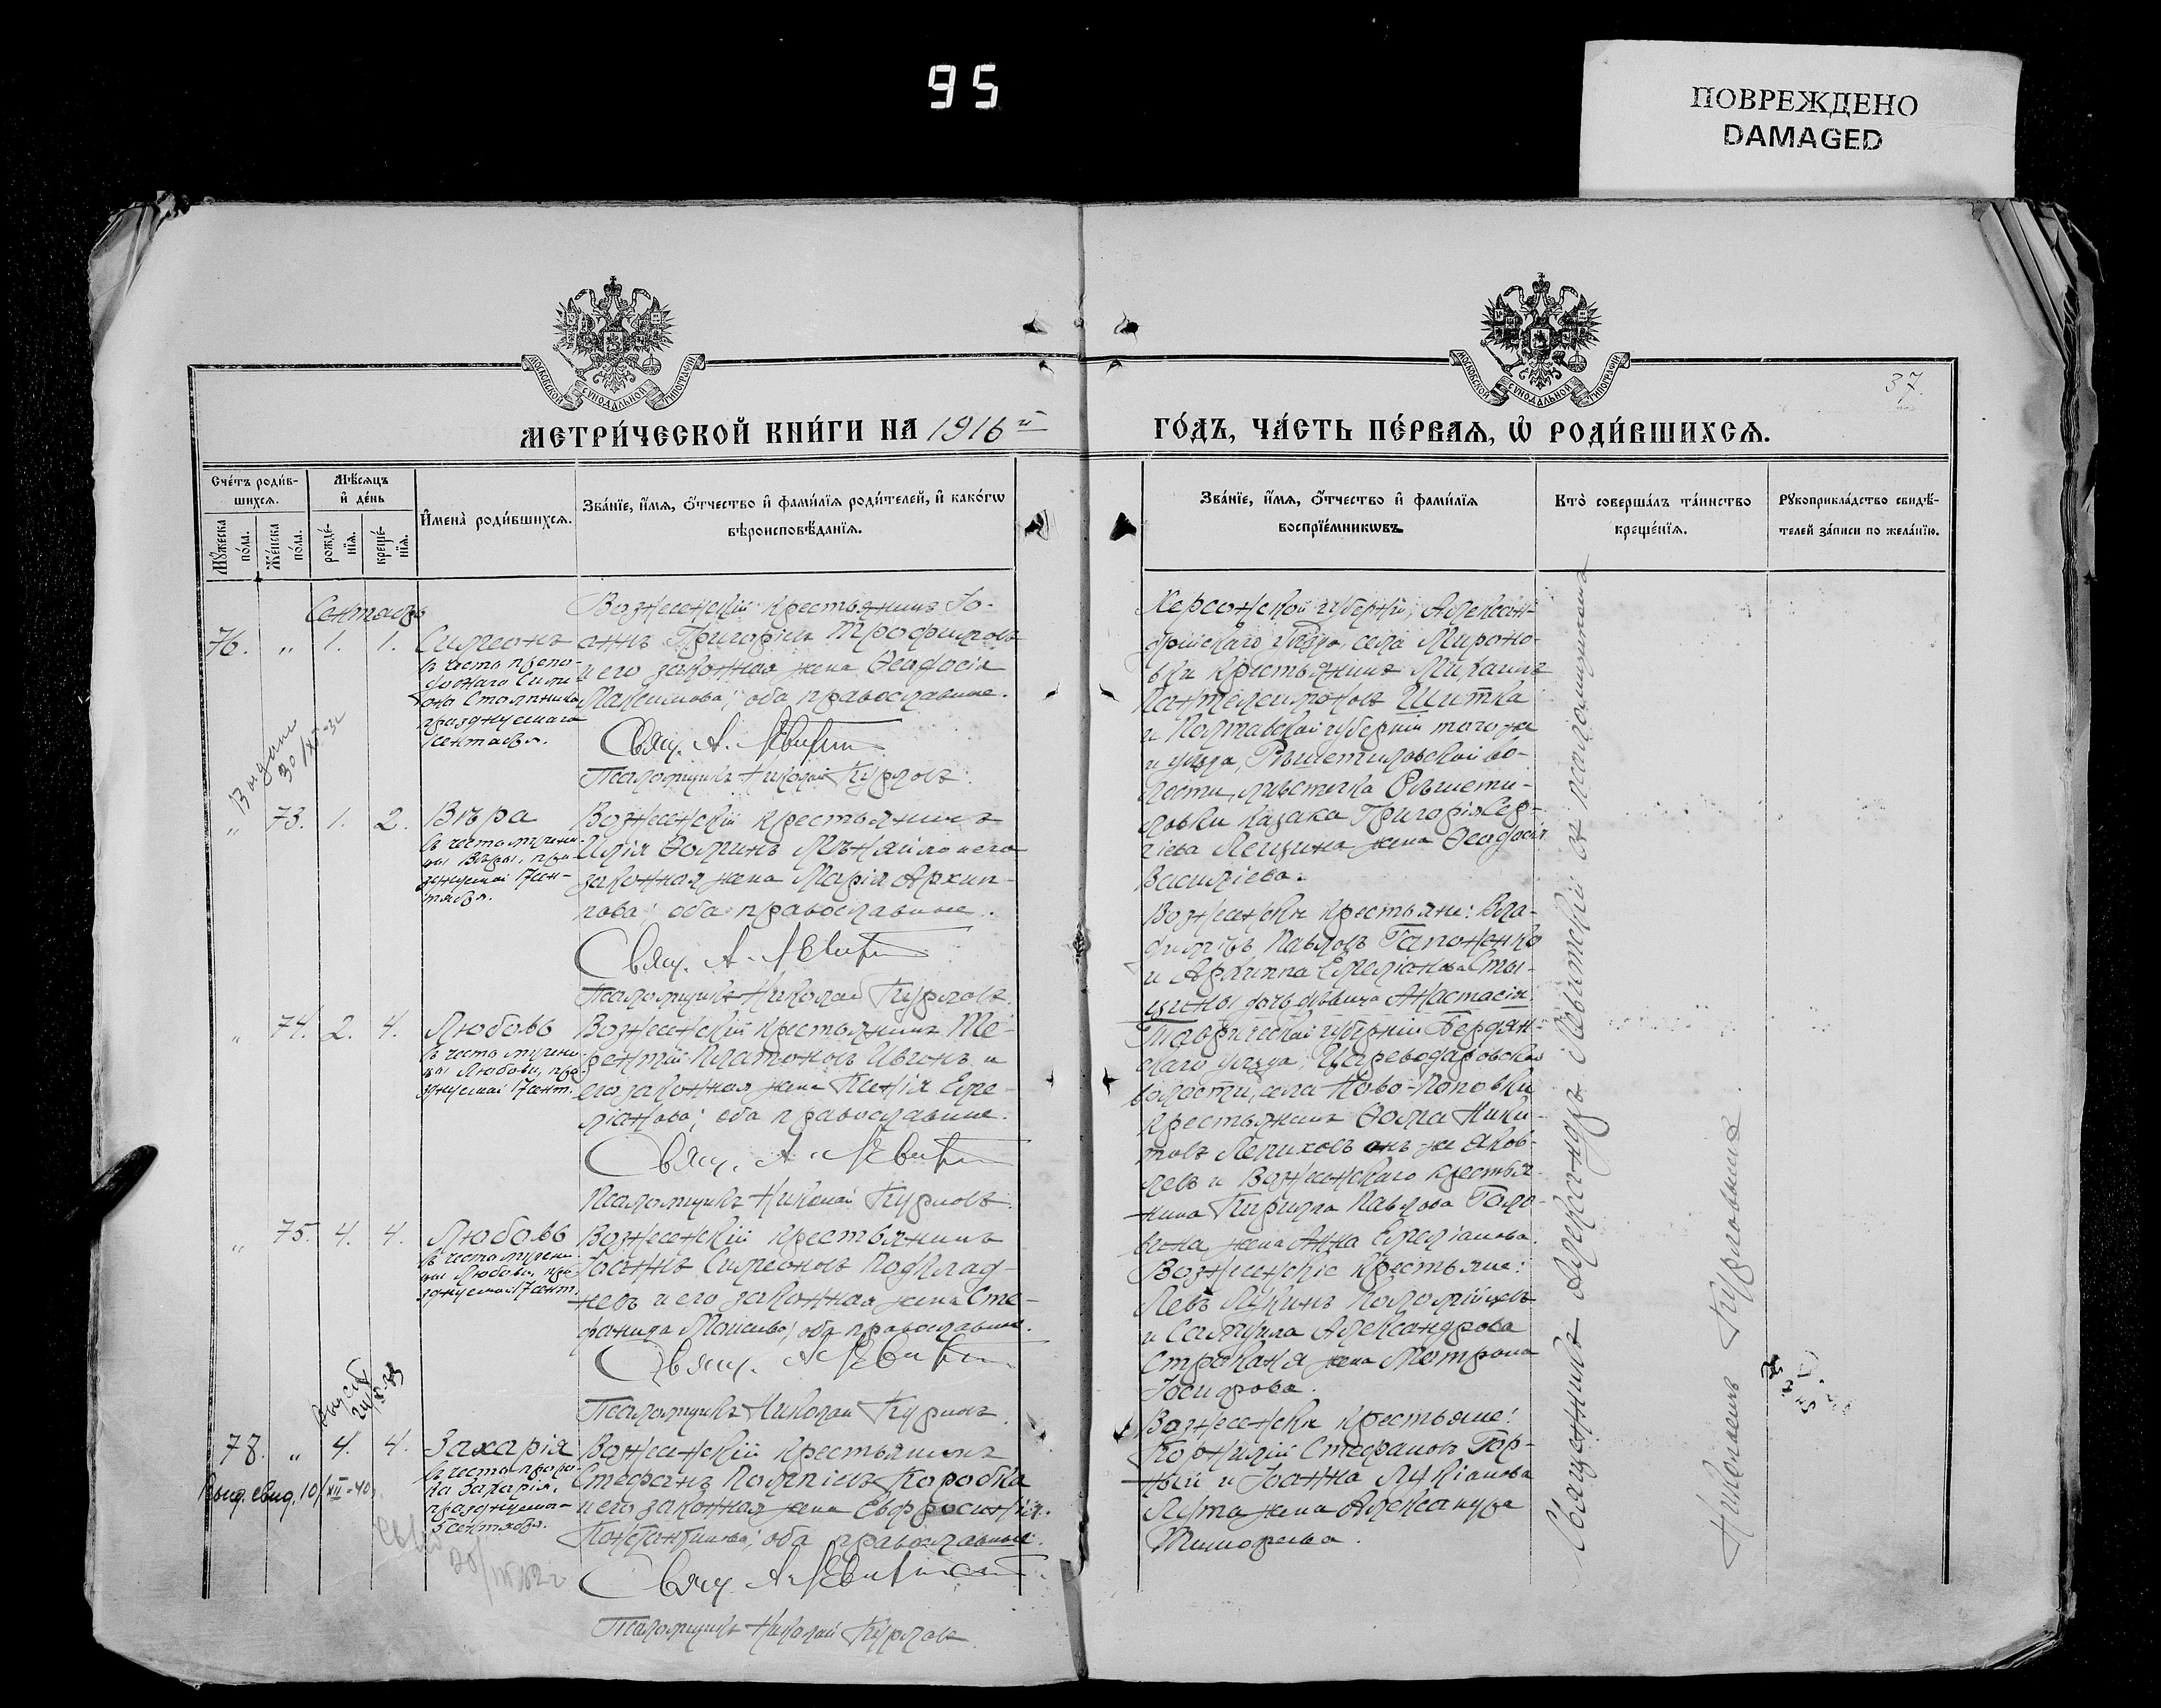 95
ПОВРЕЖДЕНО
DAMAGED
МОСКОВСКОЙ СѴНОДАЛЬНОЙ ТИПОГРАФІИ
МОСКОВСКОЙ СѴНОДАЛЬНОЙ ТИПОГРАФІИ
37.
МЕТРИ́ЧЕСКОЙ КНИ́ГИ НА 1916й
ГО́ДЪ, ЧА́СТЬ ПЕ́РВАѦ, Ѡ РОДИ́ВШИХСѦ.
Сче́тъ роди́в-
шихсѧ.
Мꙋжеска
по́ла.
Же́нска
по́ла.
Мѣ́сѧцъ
и де́нь
рожде́-
нїѧ.
креще́-
нїѧ.
Имена̀ роди́вшихсѧ.
Зва́нїе, и́мѧ, о́тчество и фами́лїѧ роди́телей, и како́гѡ
вѣроисповѣ́данїѧ.
Зва́нїе, и́мѧ, о́тчество и фами́лїѧ
воспрїе́мникѡвъ.
Кто̀ соверша́лъ та́инство
креще́нїѧ.
Рꙋкоприкла́дство свидѣ́-
телей за́писи по жела́нїю.
Сентябрь
76. „ 1. 1. Симеонъ
въ честь препо-
добнаго Симе-
она Столпника
празднуемаго
1 сентября.
Вознесенскій крестьянинъ Іо-
аннъ Григоріевъ Трофимовъ
и его законная жена Ѳеодосія
Максимова; оба православные.
Свящ. А. Левитскій
Псаломщикъ Николай Курловъ.
Херсонской губерніи, Алексан-
дрійскаго уѣзда, села Мироно-
вки крестьянинъ Михаилъ
Пантелеимоновъ Шитка
и Полтавской губерніи того же
и уѣзда, Рѣшетиловской во-
лости, мѣстечка Рѣшети-
ловки казака Григорія Сер-
гіева Лещина жена Ѳеодосія
Василіева.
Выдано
30/
„ 73. 1. 2. Вѣра
въ честь мучени-
цы Вѣры, пра-
зднуемой 17 сен-
тября.
Вознесенскій крестьянинъ
Илія Ѳоминъ и его
законная жена Марія Архип-
пова; оба православные.
Свящ. А. Левитскій
Псаломщикъ Николай Курловъ.
Вознесенскіе крестьяне: Вла-
димиръ Павловъ Гапоненко
и Архиппа Емеліанова Сты-
цины дочь дѣвица Анастасія.
„ 74. 2. 4. Любовь
въ честь мучени-
цы Любови, пра-
зднуемой 17 сент.
Вознесенскій крестьянинъ Те-
рентій Платоновъ и
его законная жена Ксенія Еме-
ліанова; оба православные.
Свящ. А. Левитскій
Псаломщикъ Николай Курловъ.
Таврической губерніи Бердян-
скаго уѣзда, Цареводаровской
волости, села Ново-Поповки
крестьянинъ Ѳома Ники-
товъ Лепиховъ онъ же Яков-
левъ и Вознесенскаго крестья-
нина Кирилла Павлова Голо-
вина жена Анна Емеліанова.
„ 75. 4. 4. Любовь
въ честь мучени-
цы Любови, пра-
зднуемой 17 сент.
Вознесенскій крестьянинъ
Іоаннъ Симеоновъ Подклад-
невъ и его законная жена Сте-
фанида Моисеева; оба православные.
Свящ. А. Левитскій
Псаломщикъ Николай Курловъ.
Вознесенскіе крестьяне:
Левъ Лукинъ Коломійцевъ
и Самуила Александрова
Стракани жена Матрона
Іосифова.
78. „ 4. 4. Захарія
въ честь проро-
ка Захарія,
празднуемаго
5 сентября.
Выд. свид. 10/XII-40
Вознесенскій крестьянинъ
Стефанъ Коробка
и его законная жена Евфросинія
Константинова; оба православные.
Свящ. А. Левитскій
Псаломщикъ Николай Курловъ.
Вознесенскіе крестьяне:
Корнилій Стефановъ Гор-
ный и Іоанна Лукіанова
Люта жена Александра
Тимофеева.
Священникъ Александръ Левитскій съ псаломщикомъ
Николаемъ Курловымъ.